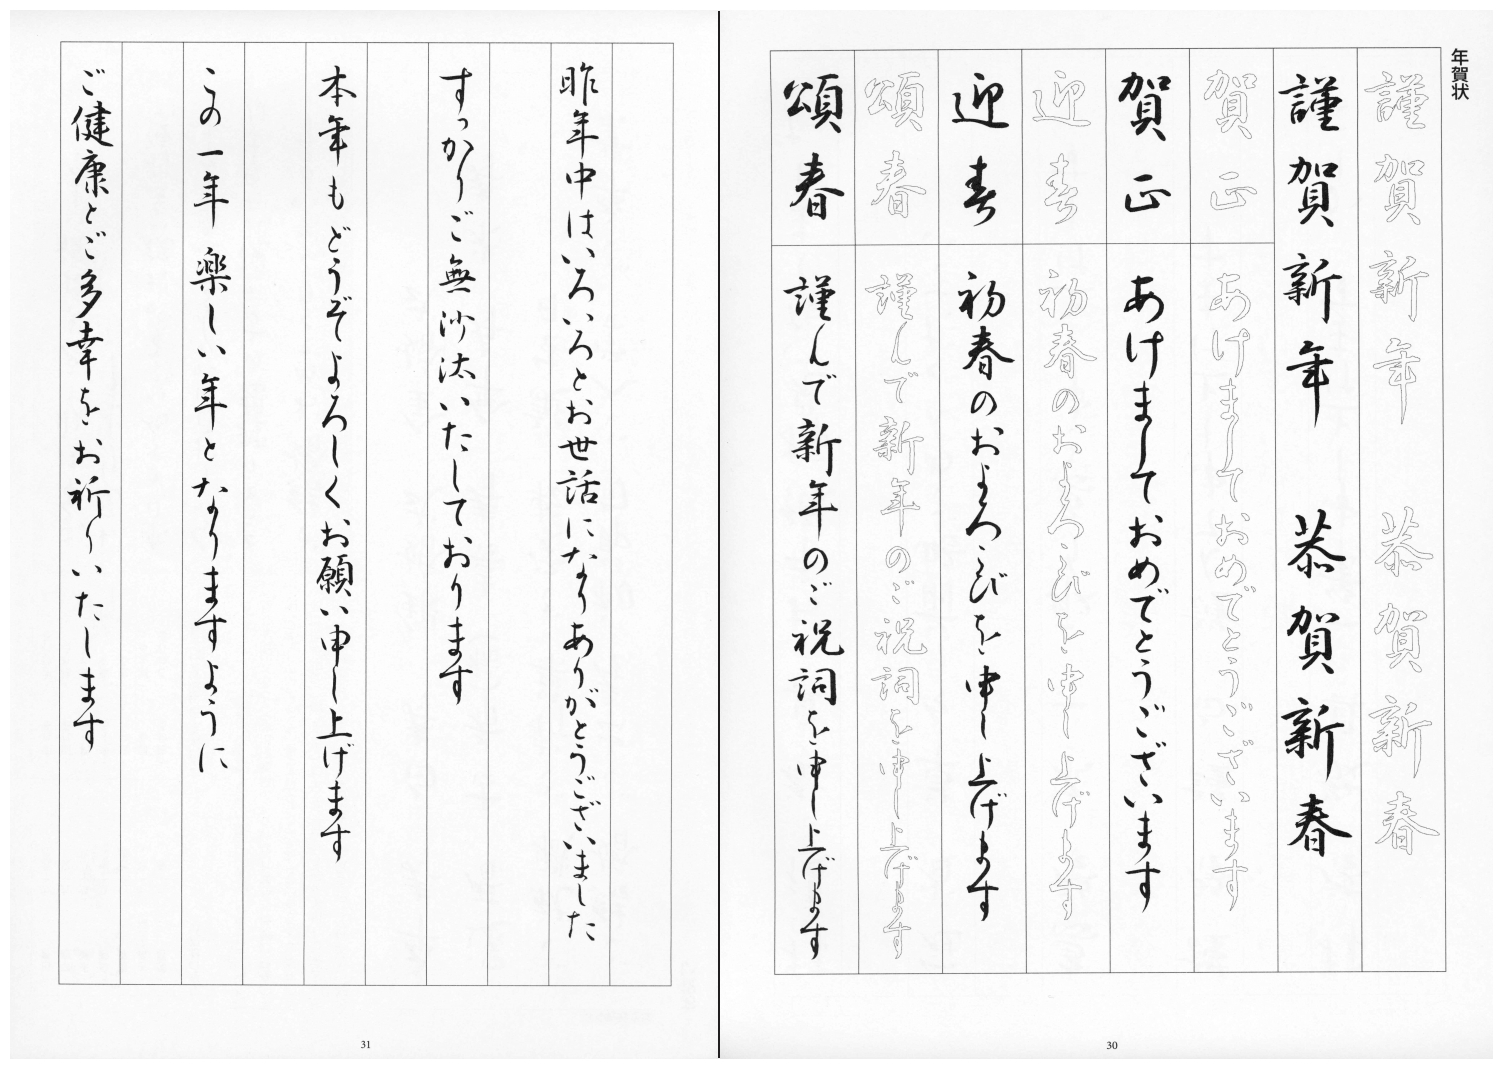 年賀状
謹賀新年 恭賀新春
謹賀新年 恭賀新春
賀正 あけましておめでとうございます
賀正 あけましておめでとうございます
迎春 初春のおよろこびを申し上げます
迎春 初春のおよろこびを申し上げます
頌春 謹んで新年のご祝詞を申し上げます
頌春 謹んで新年のご祝詞を申し上げます
30
昨年中はいろいろとお世話になりありがとうございました
すっかりご無沙汰いたしております
本年もどうぞよろしくお願い申し上げます
この一年 楽しい年となりますように
ご健康とご多幸をお祈りいたします
31